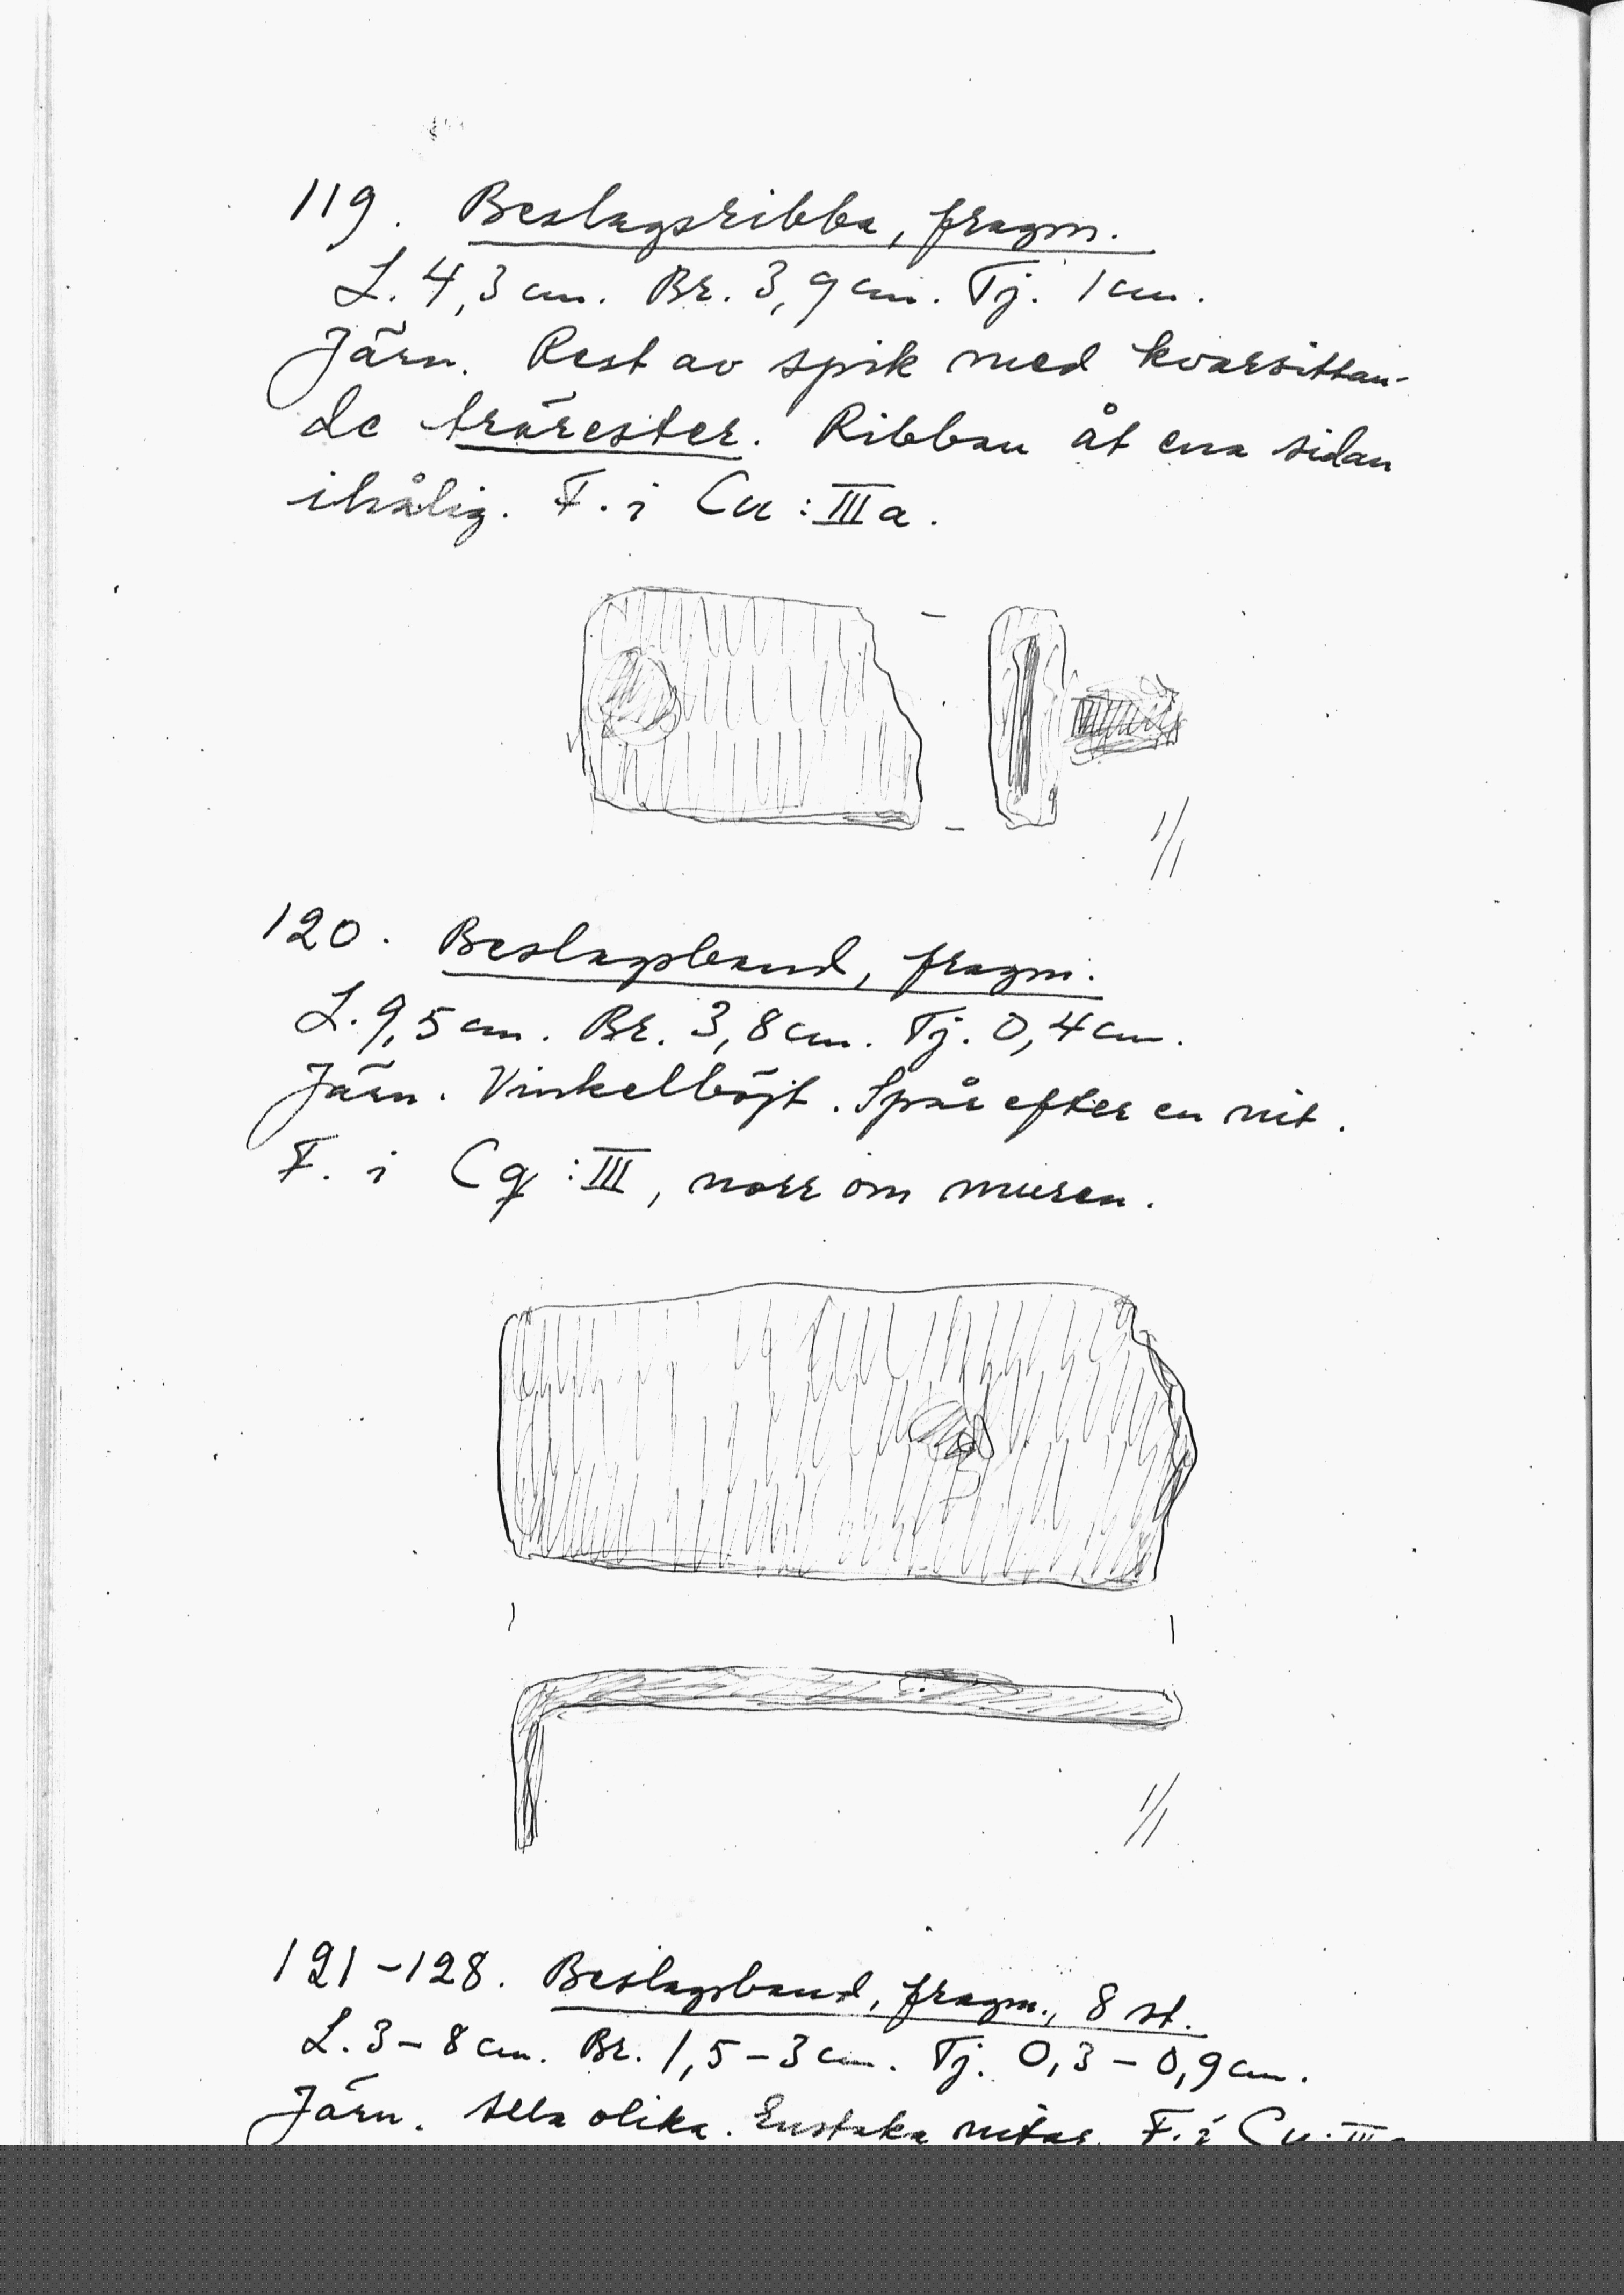 119. Beslagsribba, fragm.
L. 4,3 cm. Br. 3,9 cm. Tj. 1 cm.
Järn. Rest av spik med kvarsittan-
de trärester. Ribban åt ena sidan
ihålig. F. i Cu : III a.
1/1
120. Beslagsband, fragm.
L. 9,5 cm. Br. 3,8 cm. Tj. 0,4 cm.
Järn. Vinkelböjt. Spår efter en nit.
F. i Cq : III, norr om muren.
1/1
121-128. Beslagsband, fragm., 8 st.
L. 3-8 cm. Br. 1,5-3 cm. Tj. 0,3-0,9 cm.
Järn. Alla olika. Enstaka nitar. F. i